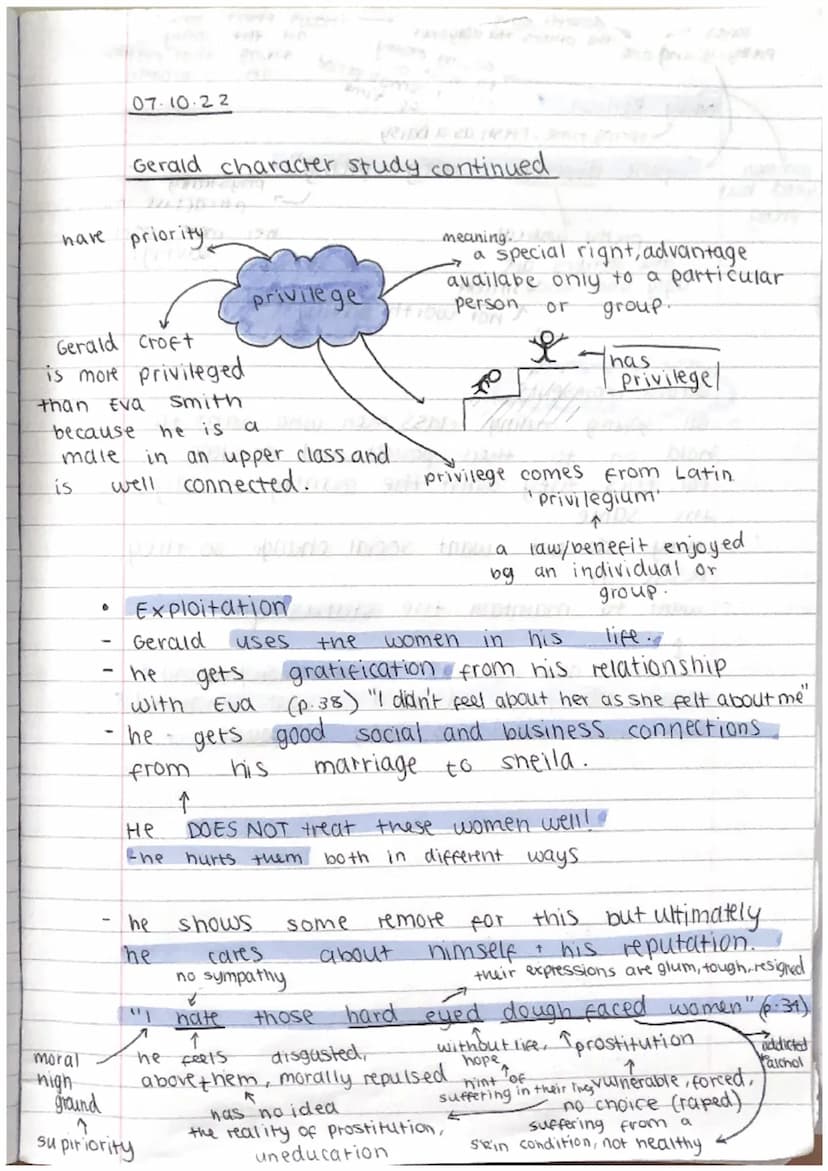 07.10.22
Gerald character study continued
have priority
privilege
meaning:
a special right, advantage
availabe only to a particular
person or group.
Gerald Croft
is more privileged
than Eva Smith
because he is a
male in an upper class and
is well connected.
has
privilege
privilege comes from Latin
'privilegium'
a law/benefit enjoyed
by an individual or
group.
• Exploitation
- Gerald uses the women in his life.
- he gets gratification from his relationship
with Eva (p.38) "I didn't feel about her as she felt about me"
- he gets good social and business connections
from his marriage to sheila.
He DOES NOT treat these women well!
-he hurts them both in different ways
- he shows some remore for this but ultimately
he cares about himself + his reputation.
no sympathy
their expressions are glum, tough, resigned
"I hate those hard eyed dough faced women" (p.34)
moral
high
ground
supiriority
he feels disgusted,
above them, morally repulsed
has no idea
the reality of prostitution,
uneducation
without life,
hope
hint of
suffering in their lives
prostitution
vulnerable, forced,
no choice (raped)
suffering from a
skin condition, not healthy
addicted
alchol